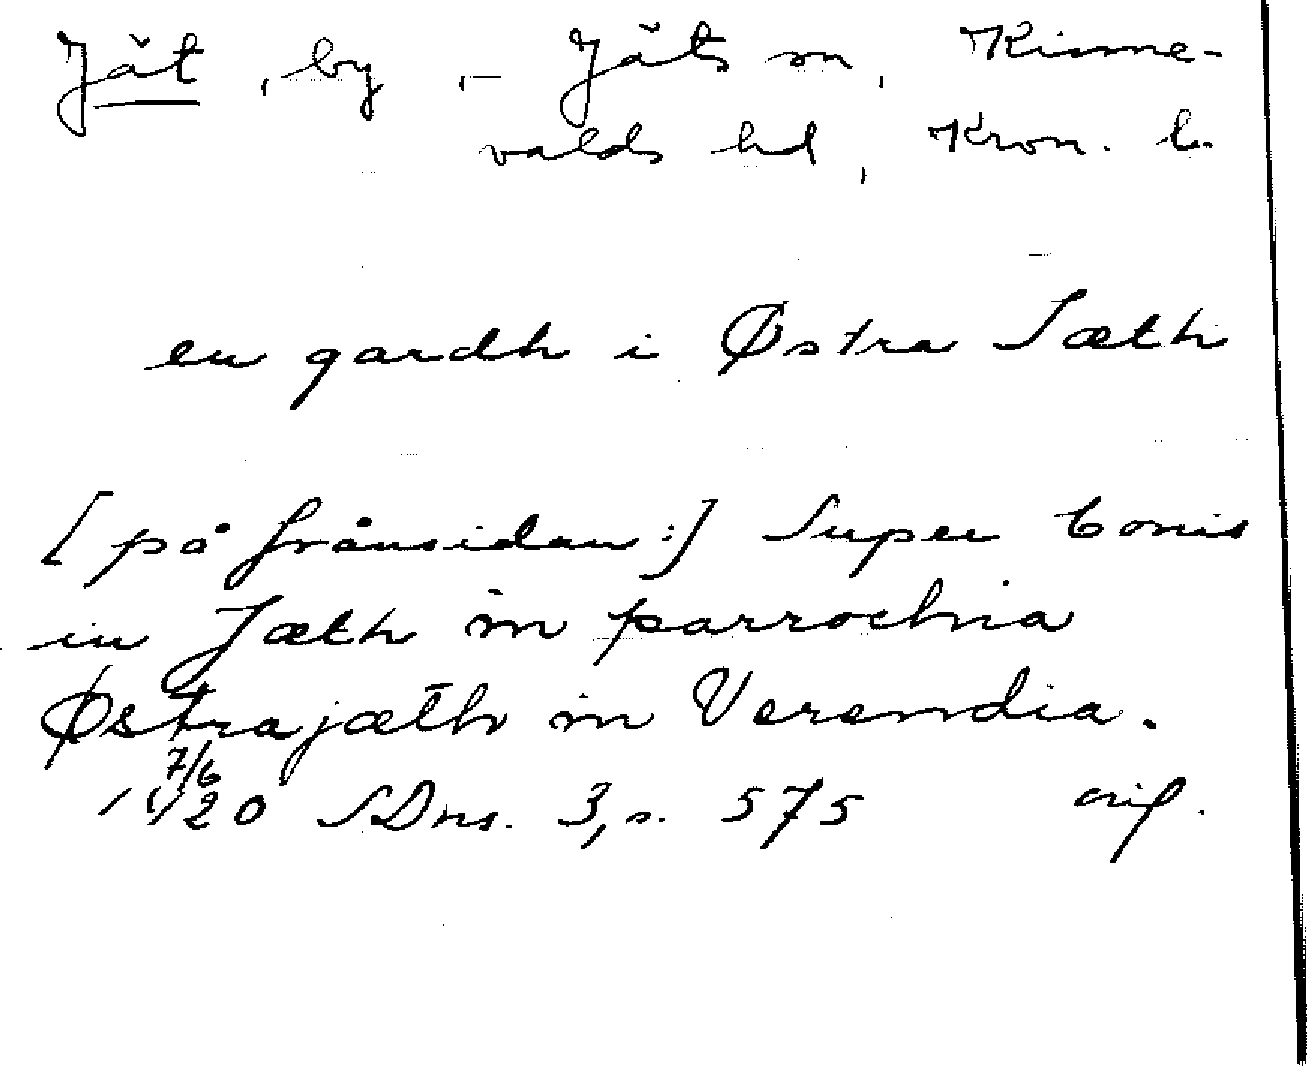 Jät, by, – Jäts sn, Kinne-
valds hd, Kron. l.
en gardh i Østra Jæth
[på frånsidan:] Super bonis
in Jæth in parrochia
Østrajæth in Verendia.
7/6
1420 SDns. 3, s. 575 orig.